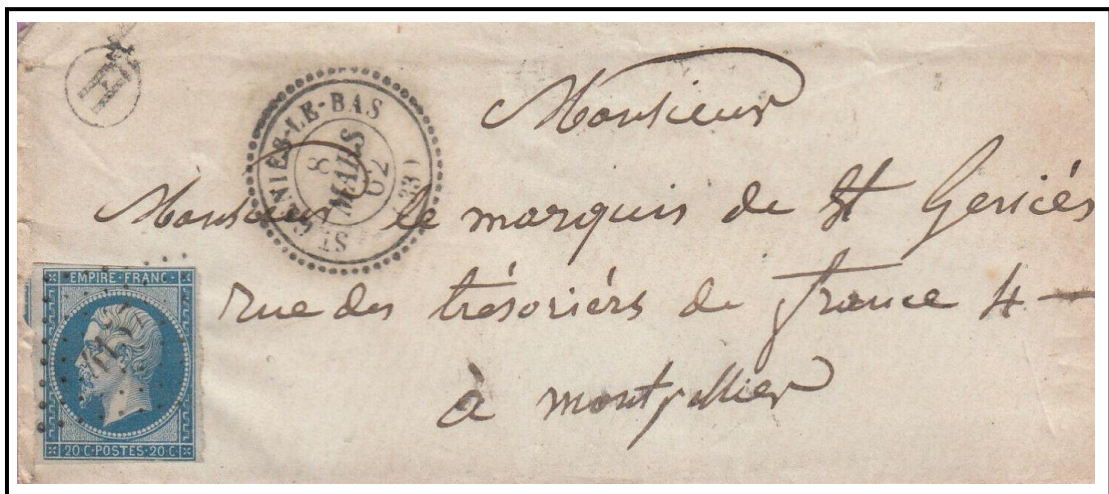 H
ST GENIES-LE-BAS
8
MARS
62
(33)
Monsieur
Monsieur le marquis de St Geniés
rue des trésoriérs de france 4 —
à montpellier
EMPIRE·FRANC·
20 C·POSTES·20 C